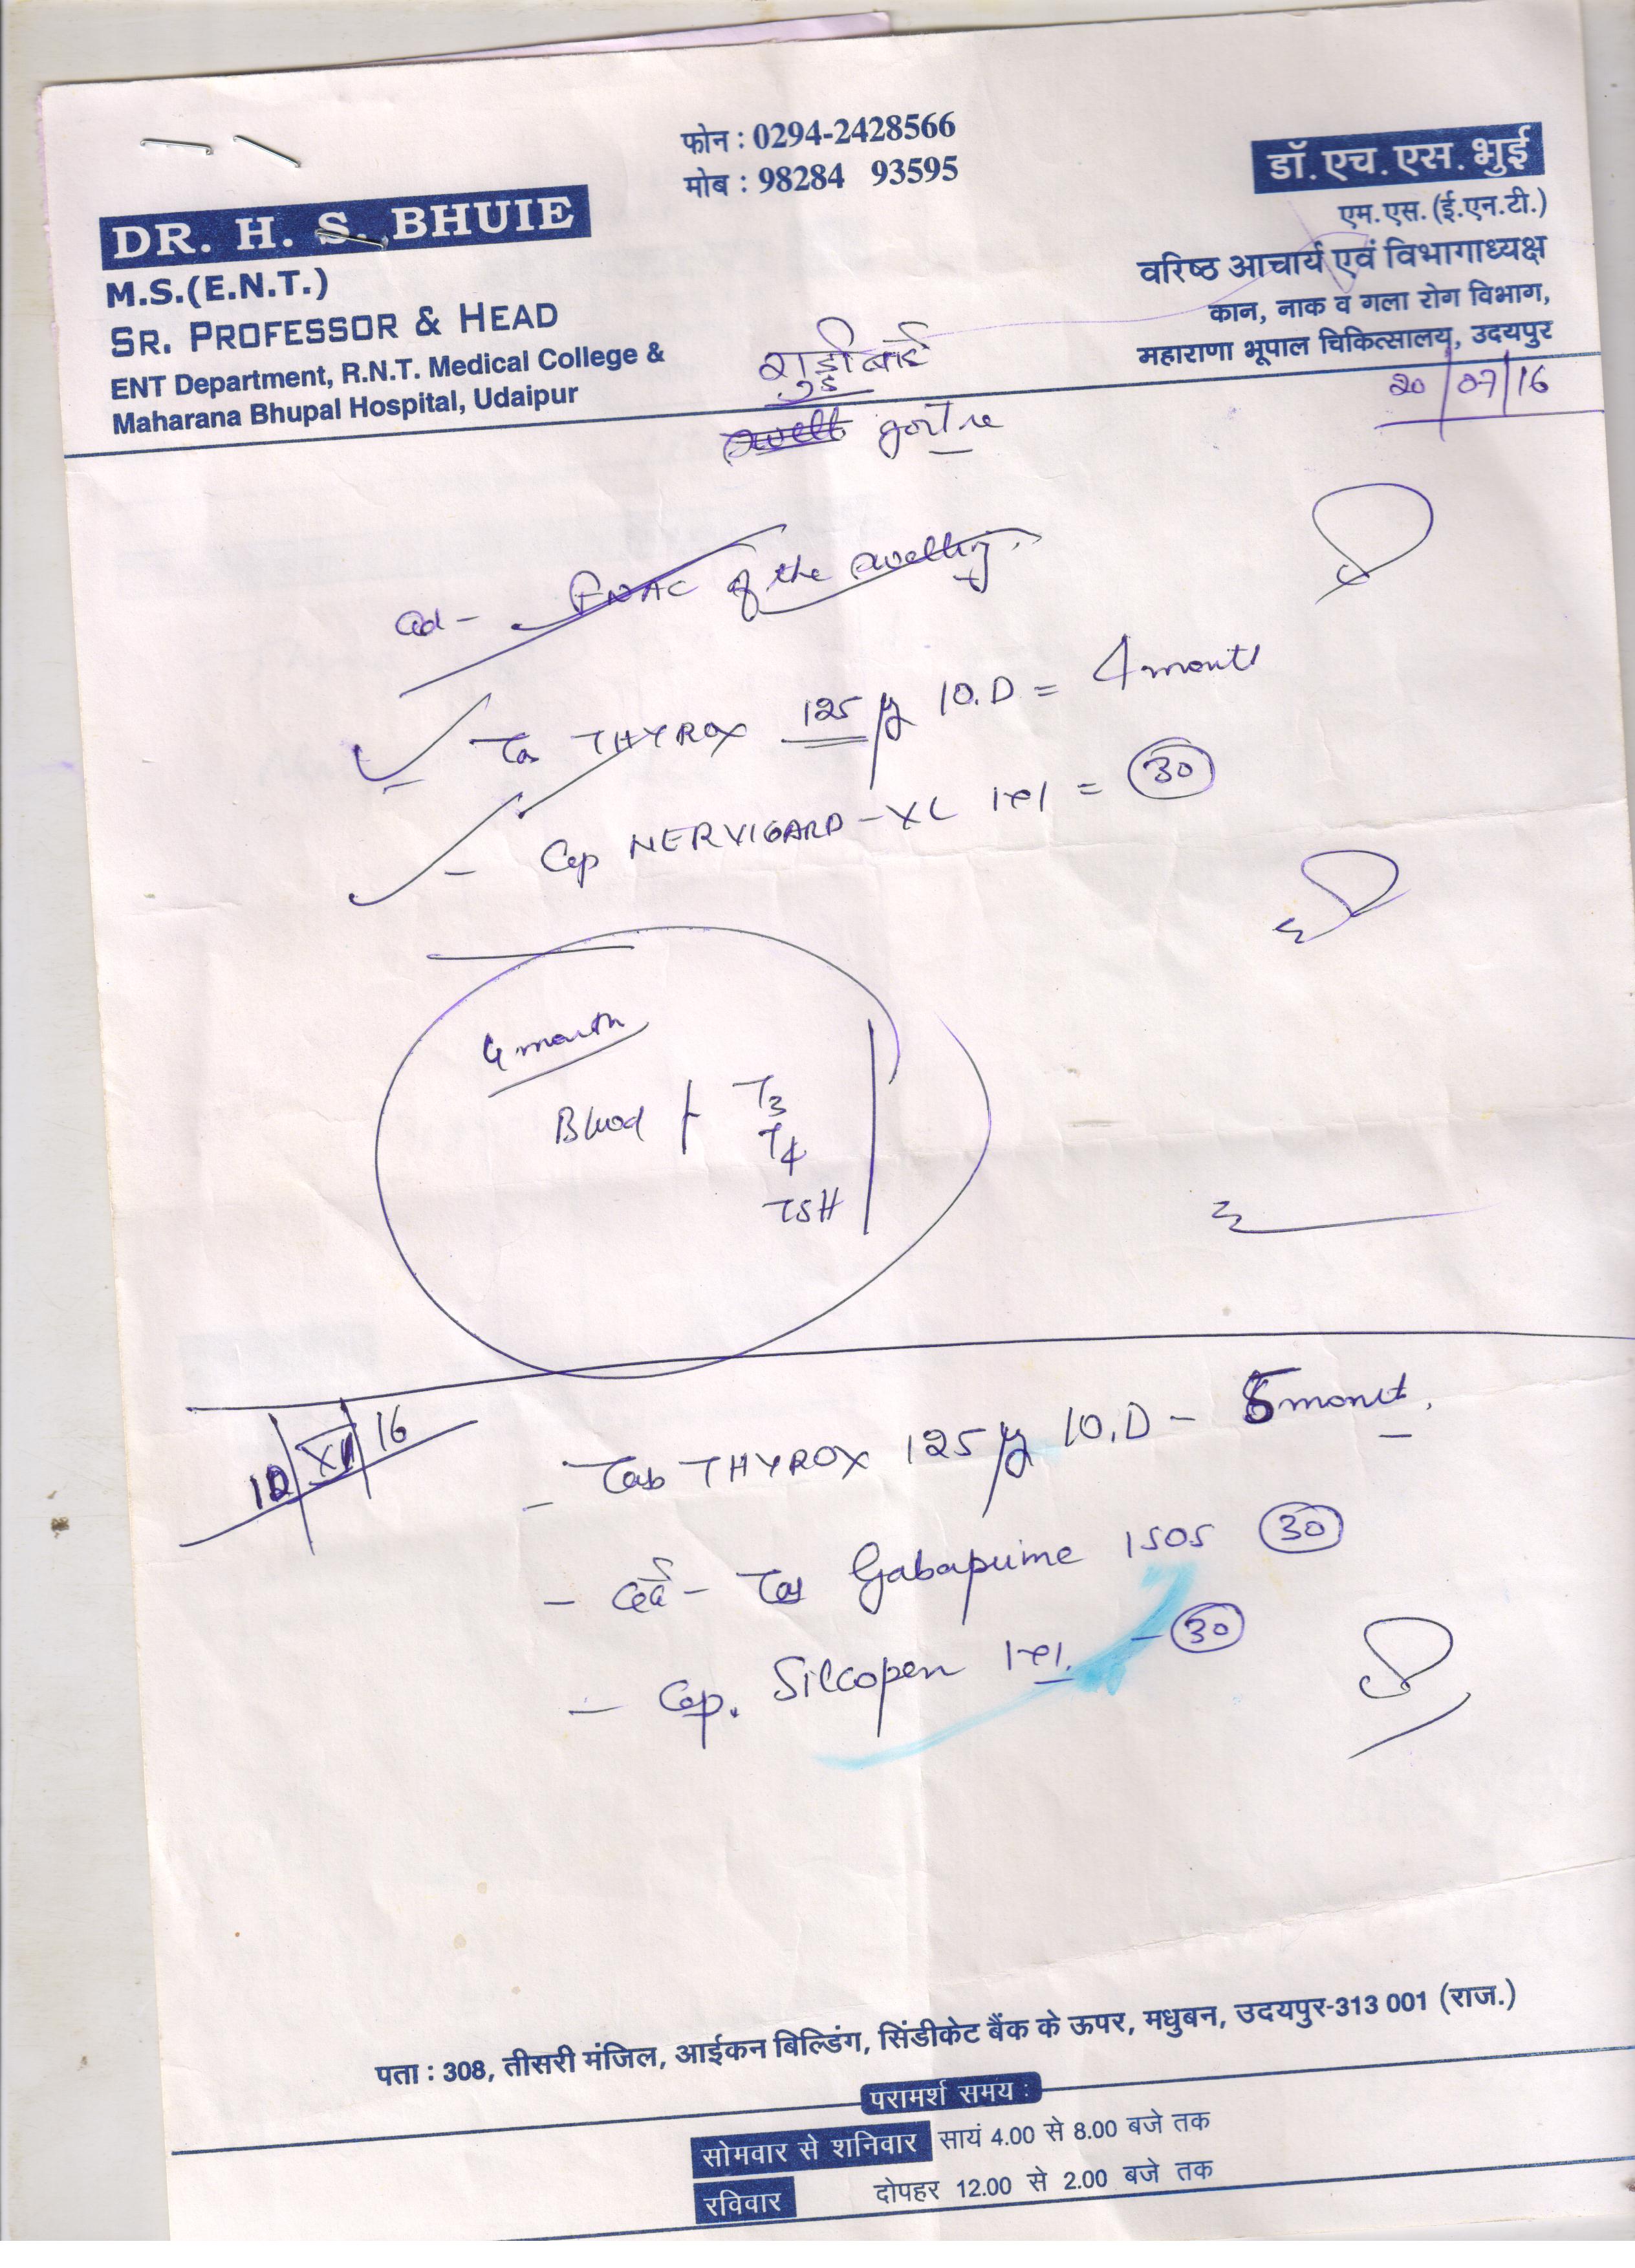 फोन : 0294-2428566
मोब : 98284 93595
DR. H. S. BHUIE
M.S.(E.N.T.)
SR. PROFESSOR & HEAD
ENT Department, R.N.T. Medical College &
Maharana Bhupal Hospital, Udaipur
डॉ. एच. एस. भुई
एम.एस. (ई.एन.टी.)
वरिष्ठ आचार्य एवं विभागाध्यक्ष
कान, नाक व गला रोग विभाग,
महाराणा भूपाल चिकित्सालय, उदयपुर
20/07/16
goitre
Ad - FNAC of the swelling.
Tab THYROX 125 μg 1O.D = 4 month
- Cap NERVIGARD-XL = 30
4 month
Blood T3
T4
TSH
XI 16
- Tab THYROX 125 μg 1O.D - month.
- दर्द - Tab 1SOS 30
- Cap. Silcopen - 30
पता : 308, तीसरी मंजिल, आईकन बिल्डिंग, सिंडीकेट बैंक के ऊपर, मधुबन, उदयपुर-313 001 (राज.)
परामर्श समय :
सोमवार से शनिवार सायं 4.00 से 8.00 बजे तक
रविवार दोपहर 12.00 से 2.00 बजे तक